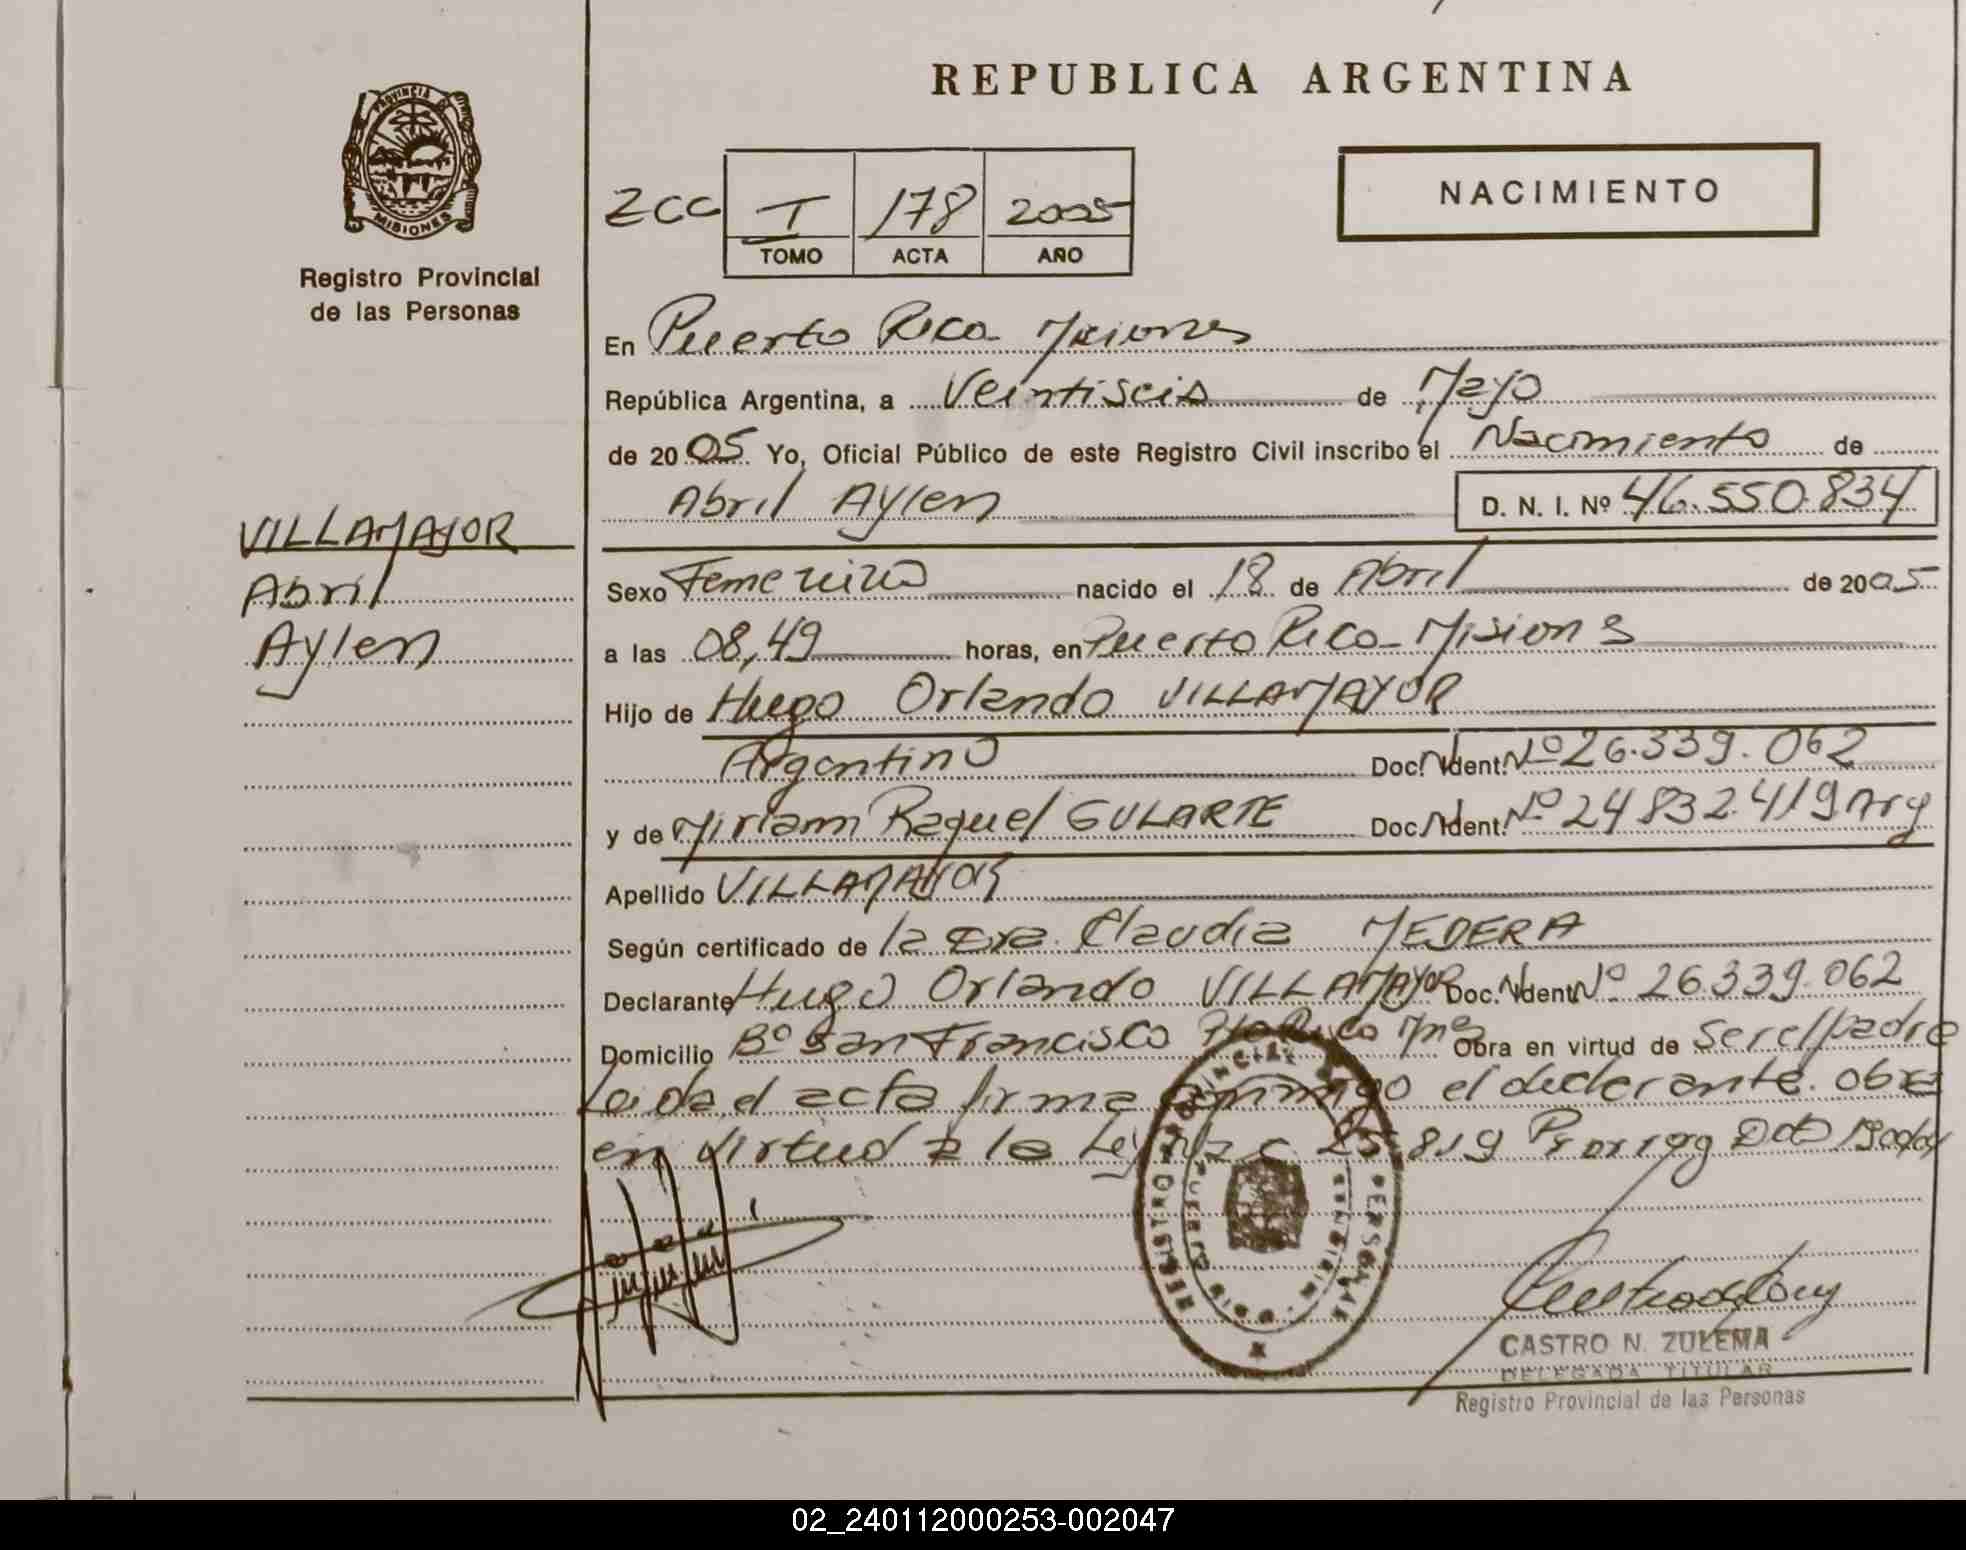 REPUBLICA ARGENTINA
PROVINCIA DE
MISIONES
Registro Provincial
de las Personas
ZCC
I 178 2005
TOMO ACTA AÑO
NACIMIENTO
En Puerto Rico - Misiones
República Argentina, a Veintiseis de Mayo
de 2005 Yo, Oficial Público de este Registro Civil inscribo el Nacimiento de
Abril Aylen D. N. I. Nº 46.550.834
VILLAMAYOR
Abril
Aylen
Sexo Femenino nacido el 18 de Abril de 2005
a las 08,49 horas, en Puerto Rico - Misiones
Hijo de Hugo Orlando VILLAMAYOR
Argentino Doc. Ident. Nº 26.339.062
y de Miriam Raquel GULARTE Doc. Ident. Nº 24832.419 Arg
Apellido VILLAMAYOR
Según certificado de la Dra. Claudia MEDERA
Declarante Hugo Orlando VILLAMAYOR Doc. Ident. Nº 26.339.062
Domicilio Bº San Francisco Pto Rico Mnes Obra en virtud de Ser el padre
Leida el acta firma conmigo el declarante. obra
en virtud de la Ley 25.819
REGISTRO PROVINCIAL DE PERSONAS
CASTRO N. ZULEMA
DELEGADA TITULAR
Registro Provincial de las Personas
02_240112000253-002047